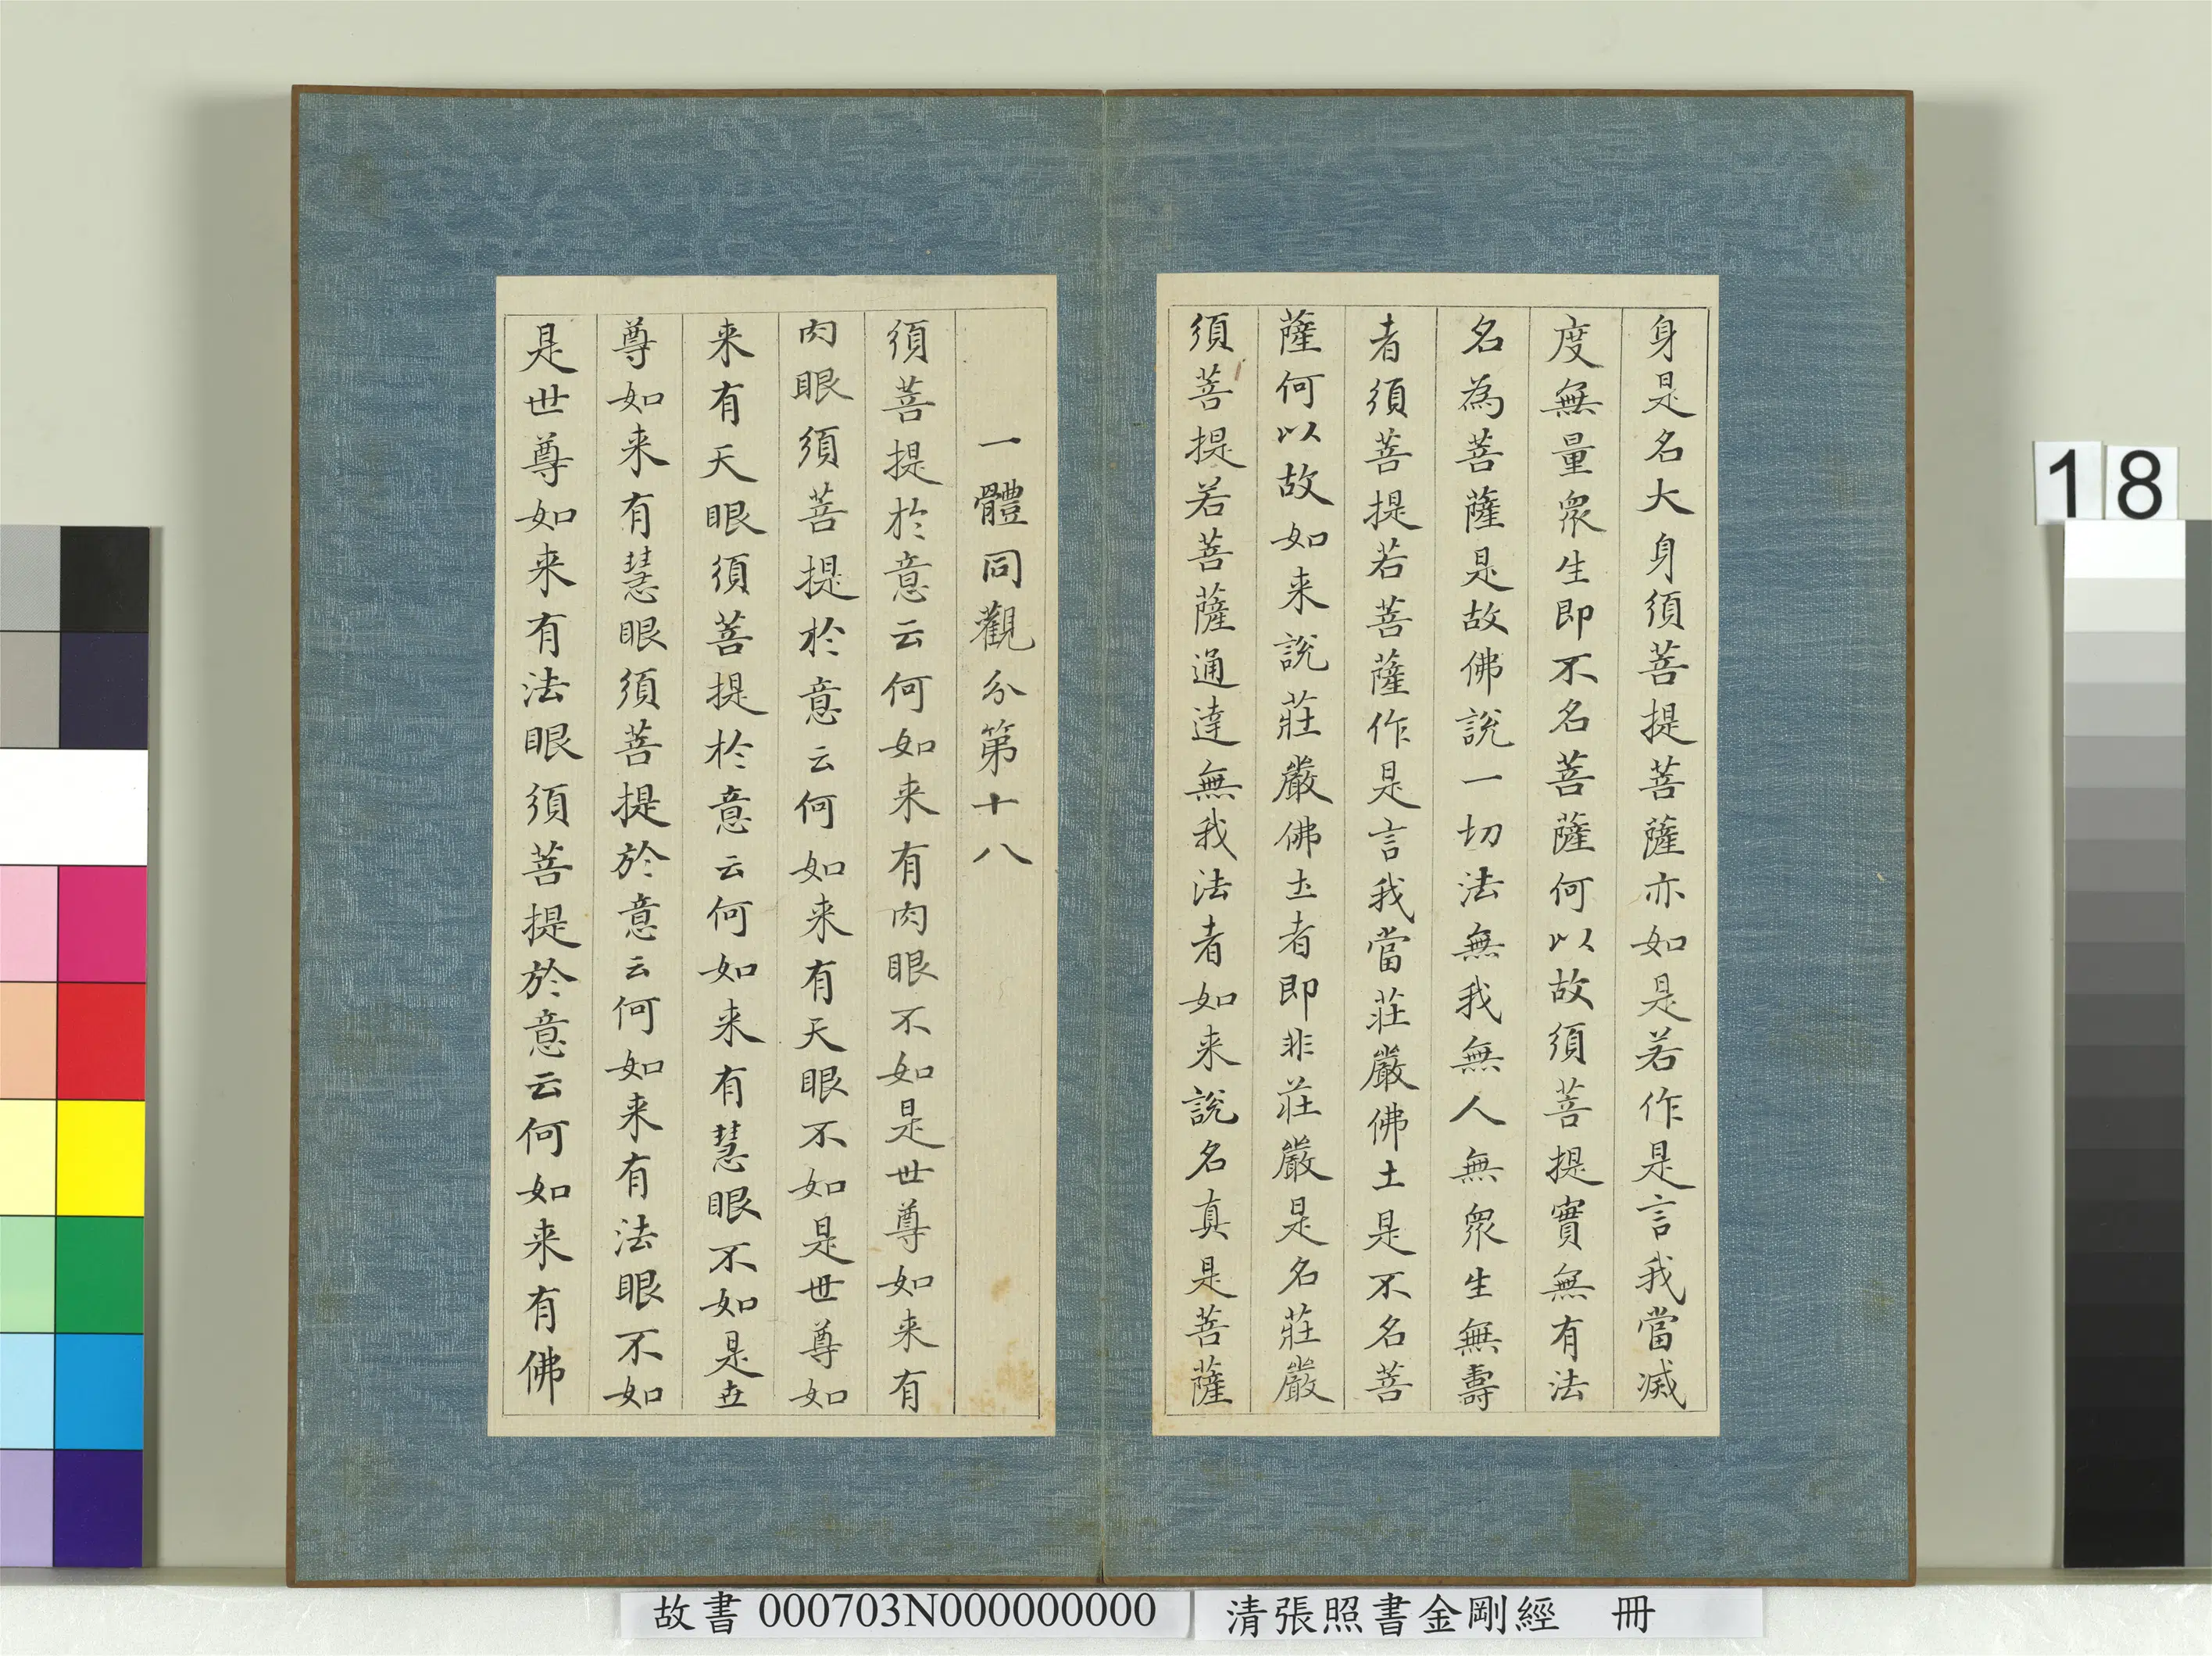 身是名大身須菩提菩薩亦如是若作是言我當滅
度無量眾生即不名菩薩何以故須菩提實無有法
名為菩薩是故佛說一切法無我無人無眾生無壽
者須菩提若菩薩作是言我當莊嚴佛土是不名菩
薩何以故如来說莊嚴佛土者即非莊嚴是名莊嚴
須菩提若菩薩通達無我法者如来說名真是菩薩
一體同觀分第十八
須菩提於意云何如来有肉眼不如是世尊如来有
肉眼須菩提於意云何如来有天眼不如是世尊如
来有天眼須菩提於意云何如来有慧眼不如是世
尊如来有慧眼須菩提於意云何如来有法眼不如
是世尊如来有法眼須菩提於意云何如来有佛
18
故書 000703N000000000
清張照書金剛經 冊